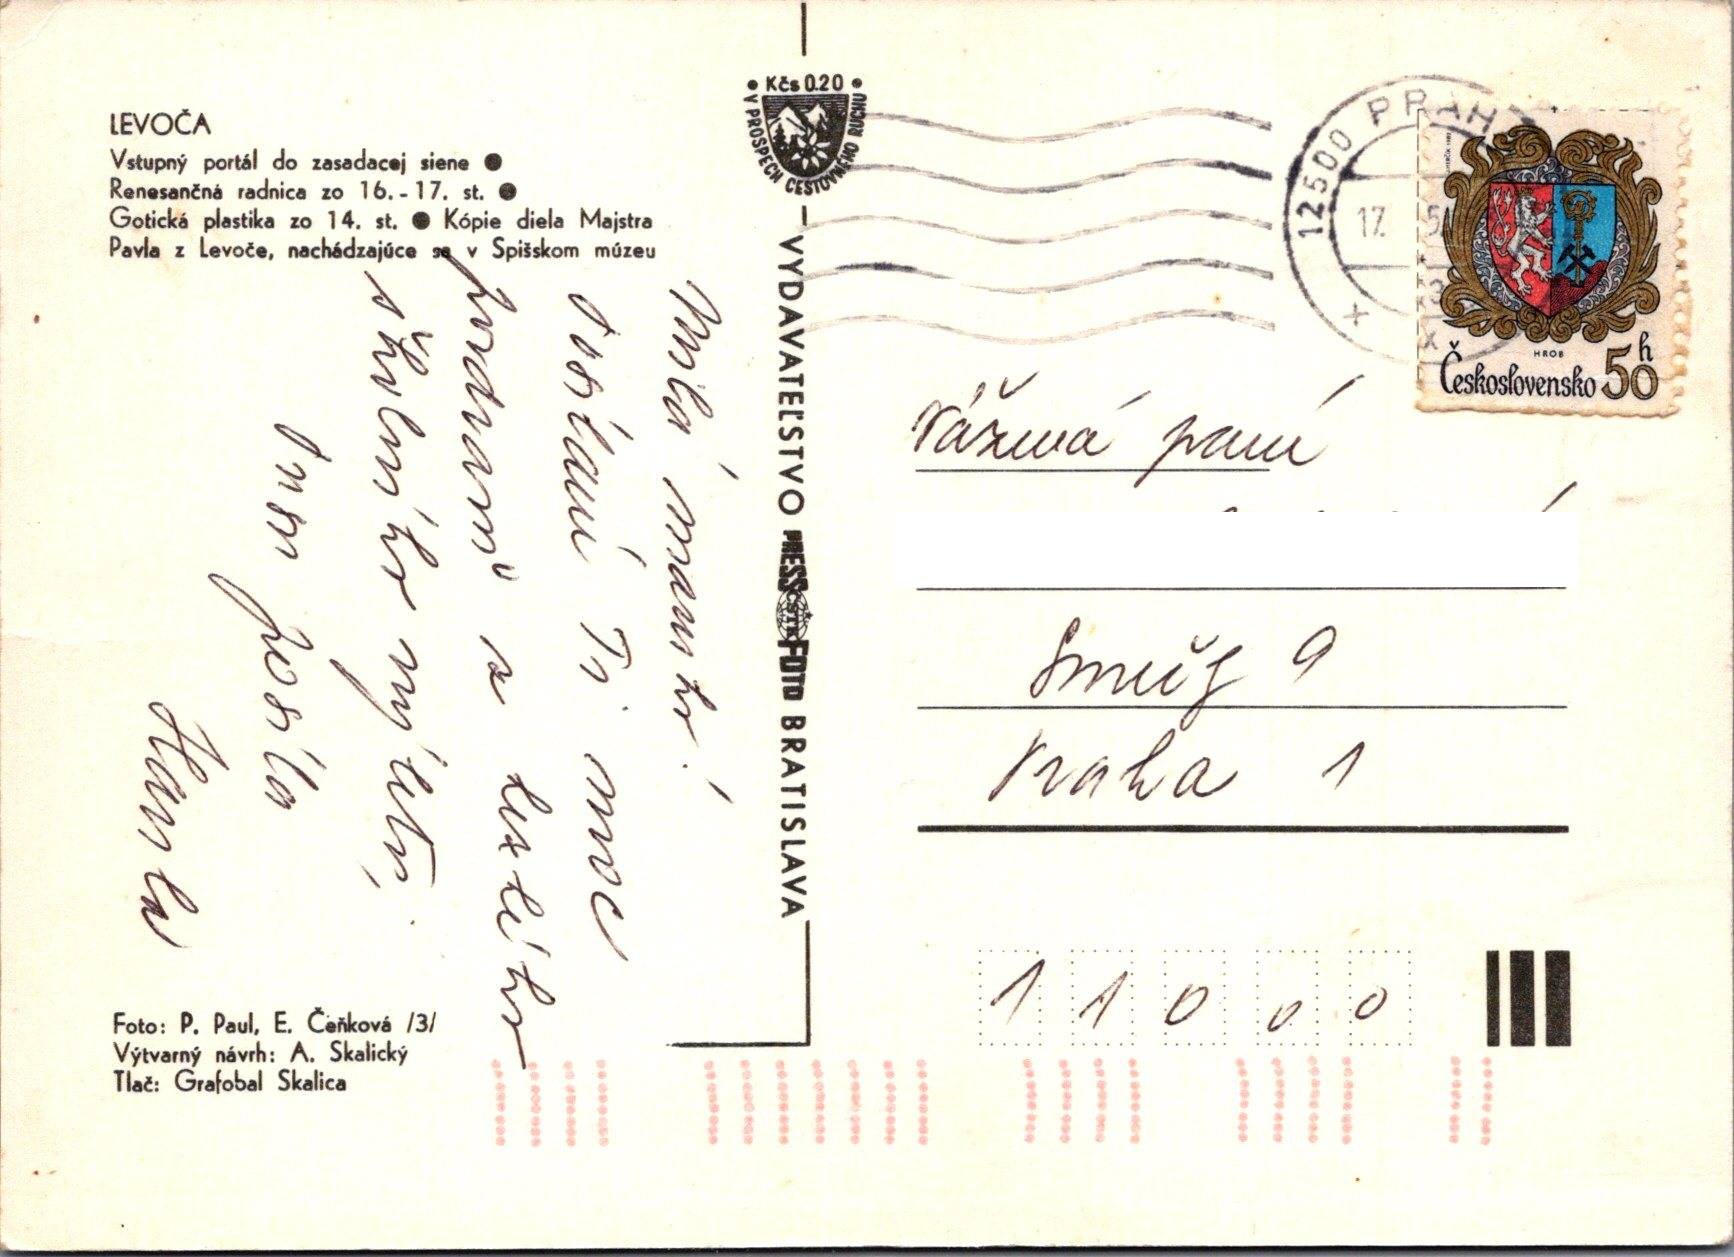 LEVOČA
Vstupný portál do zasadacej siene ●
Renesančná radnica zo 16. - 17. st. ●
Gotická plastika zo 14. st. ● Kópie diela Majstra
Pavla z Levoče, nachádzajúce sa v Spišskom múzeu
Milá mamko!
Posílám Ti moc
pozdravů z
školního výletu.
Pusu posílá
Hanka
Foto: P. Paul, E. Čeňková /3/
Výtvarný návrh: A. Skalický
Tlač: Grafobal Skalica
• Kčs 0.20 •
V PROSPECH CESTOVNÉHO RUCHU
VYDAVATEĽSTVO PRESSFOTO BRATISLAVA
ČSTK
12500 PRAHA
17.
HROB
Československo 50 h
Vážená paní
9
Praha 1
11000